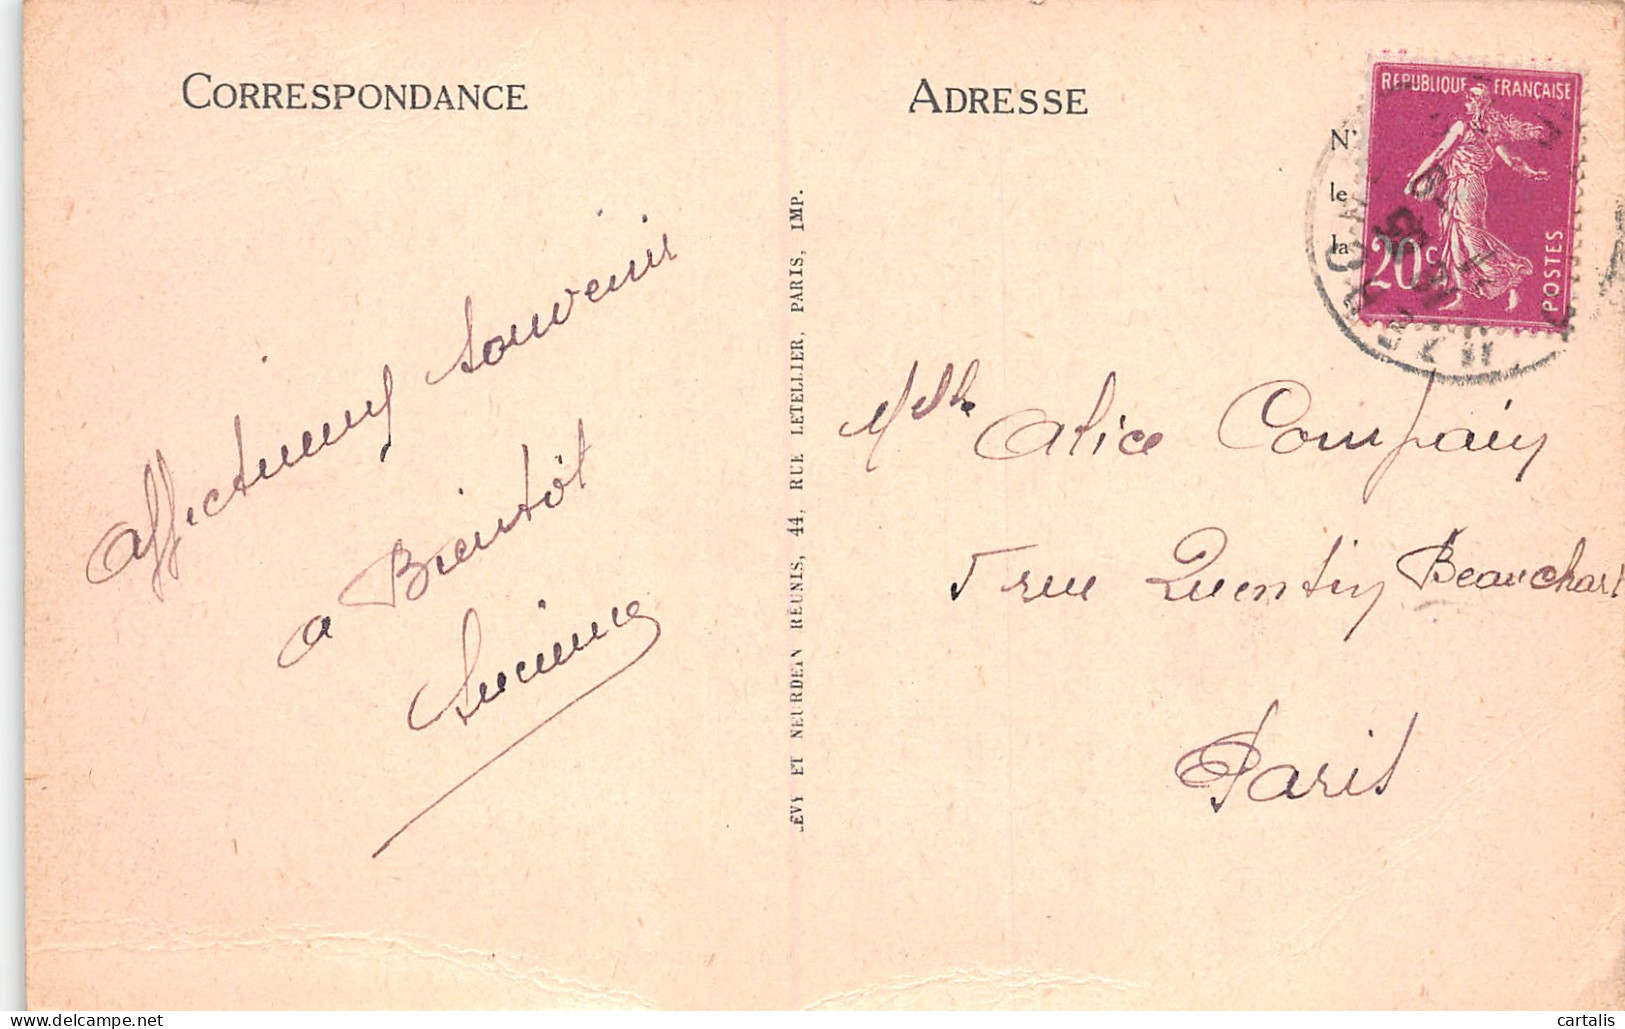 CORRESPONDANCE
affectueux souvenir
a Bientôt
Lucienne
LEVY ET NEURDEIN RÉUNIS, 44, RUE LETELLIER, PARIS, IMP.
ADRESSE
N'
le
la
REPUBLIQUE FRANÇAISE
20c
POSTES
Melle Alice Compain
5 rue Quentin Beauchart
Paris
cartalis